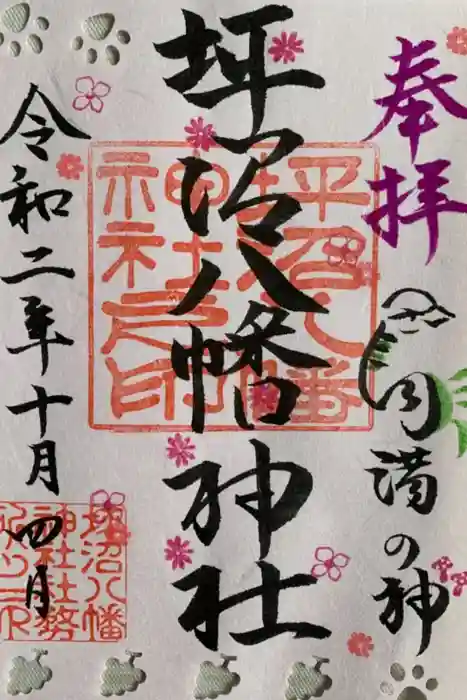 奉拝
円満の神
坪沼八幡神社
令和二年十月四日
坪沼八幡
神社社務
所之印